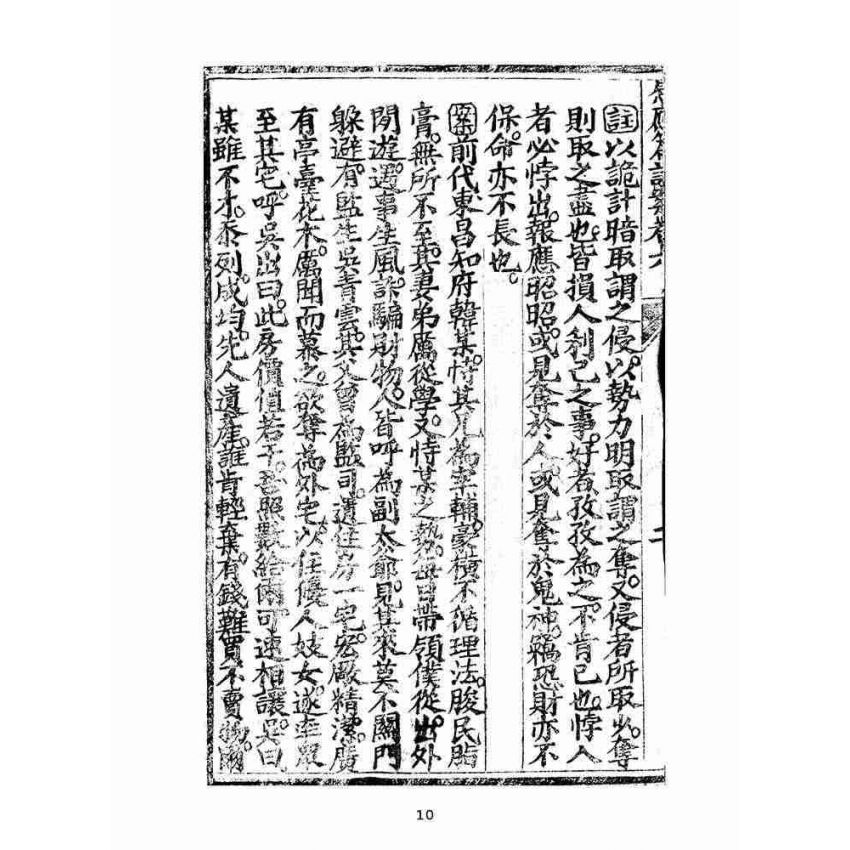 註以詭計暗取謂之侵。以勢力明取謂之奪。又侵者所取必奪
則取之盡也。皆損人利己之事。好者孜孜為之。不肯已也。悖人
者必悖出。報應昭昭。或見奪於人。或見奪於鬼神。竊恐財亦不
保。命亦不長也。
案前代東昌知府韓某。恃其兄為宰輔。豪橫不循理法。朘民脂
膏。無所不至。其妻弟厲從學。又恃某之勢。每日帶領僕從。出外
閒遊。遇事生風。詐騙財物。人皆呼為副太爺。見其來莫不關門
躲避。有監生吳青雲。其父曾為監司。遺住房一宅。宏廠精潔。廣
有亭臺花木。厲聞而慕之。欲奪為外宅。以住優人妓女。遂率眾
至其宅。呼吳出曰。此房價值若干。吾照數給爾。可速相讓。吳曰。
某雖不才。忝列成均。先人遺產。誰肯輕棄。有錢難買不賣
10